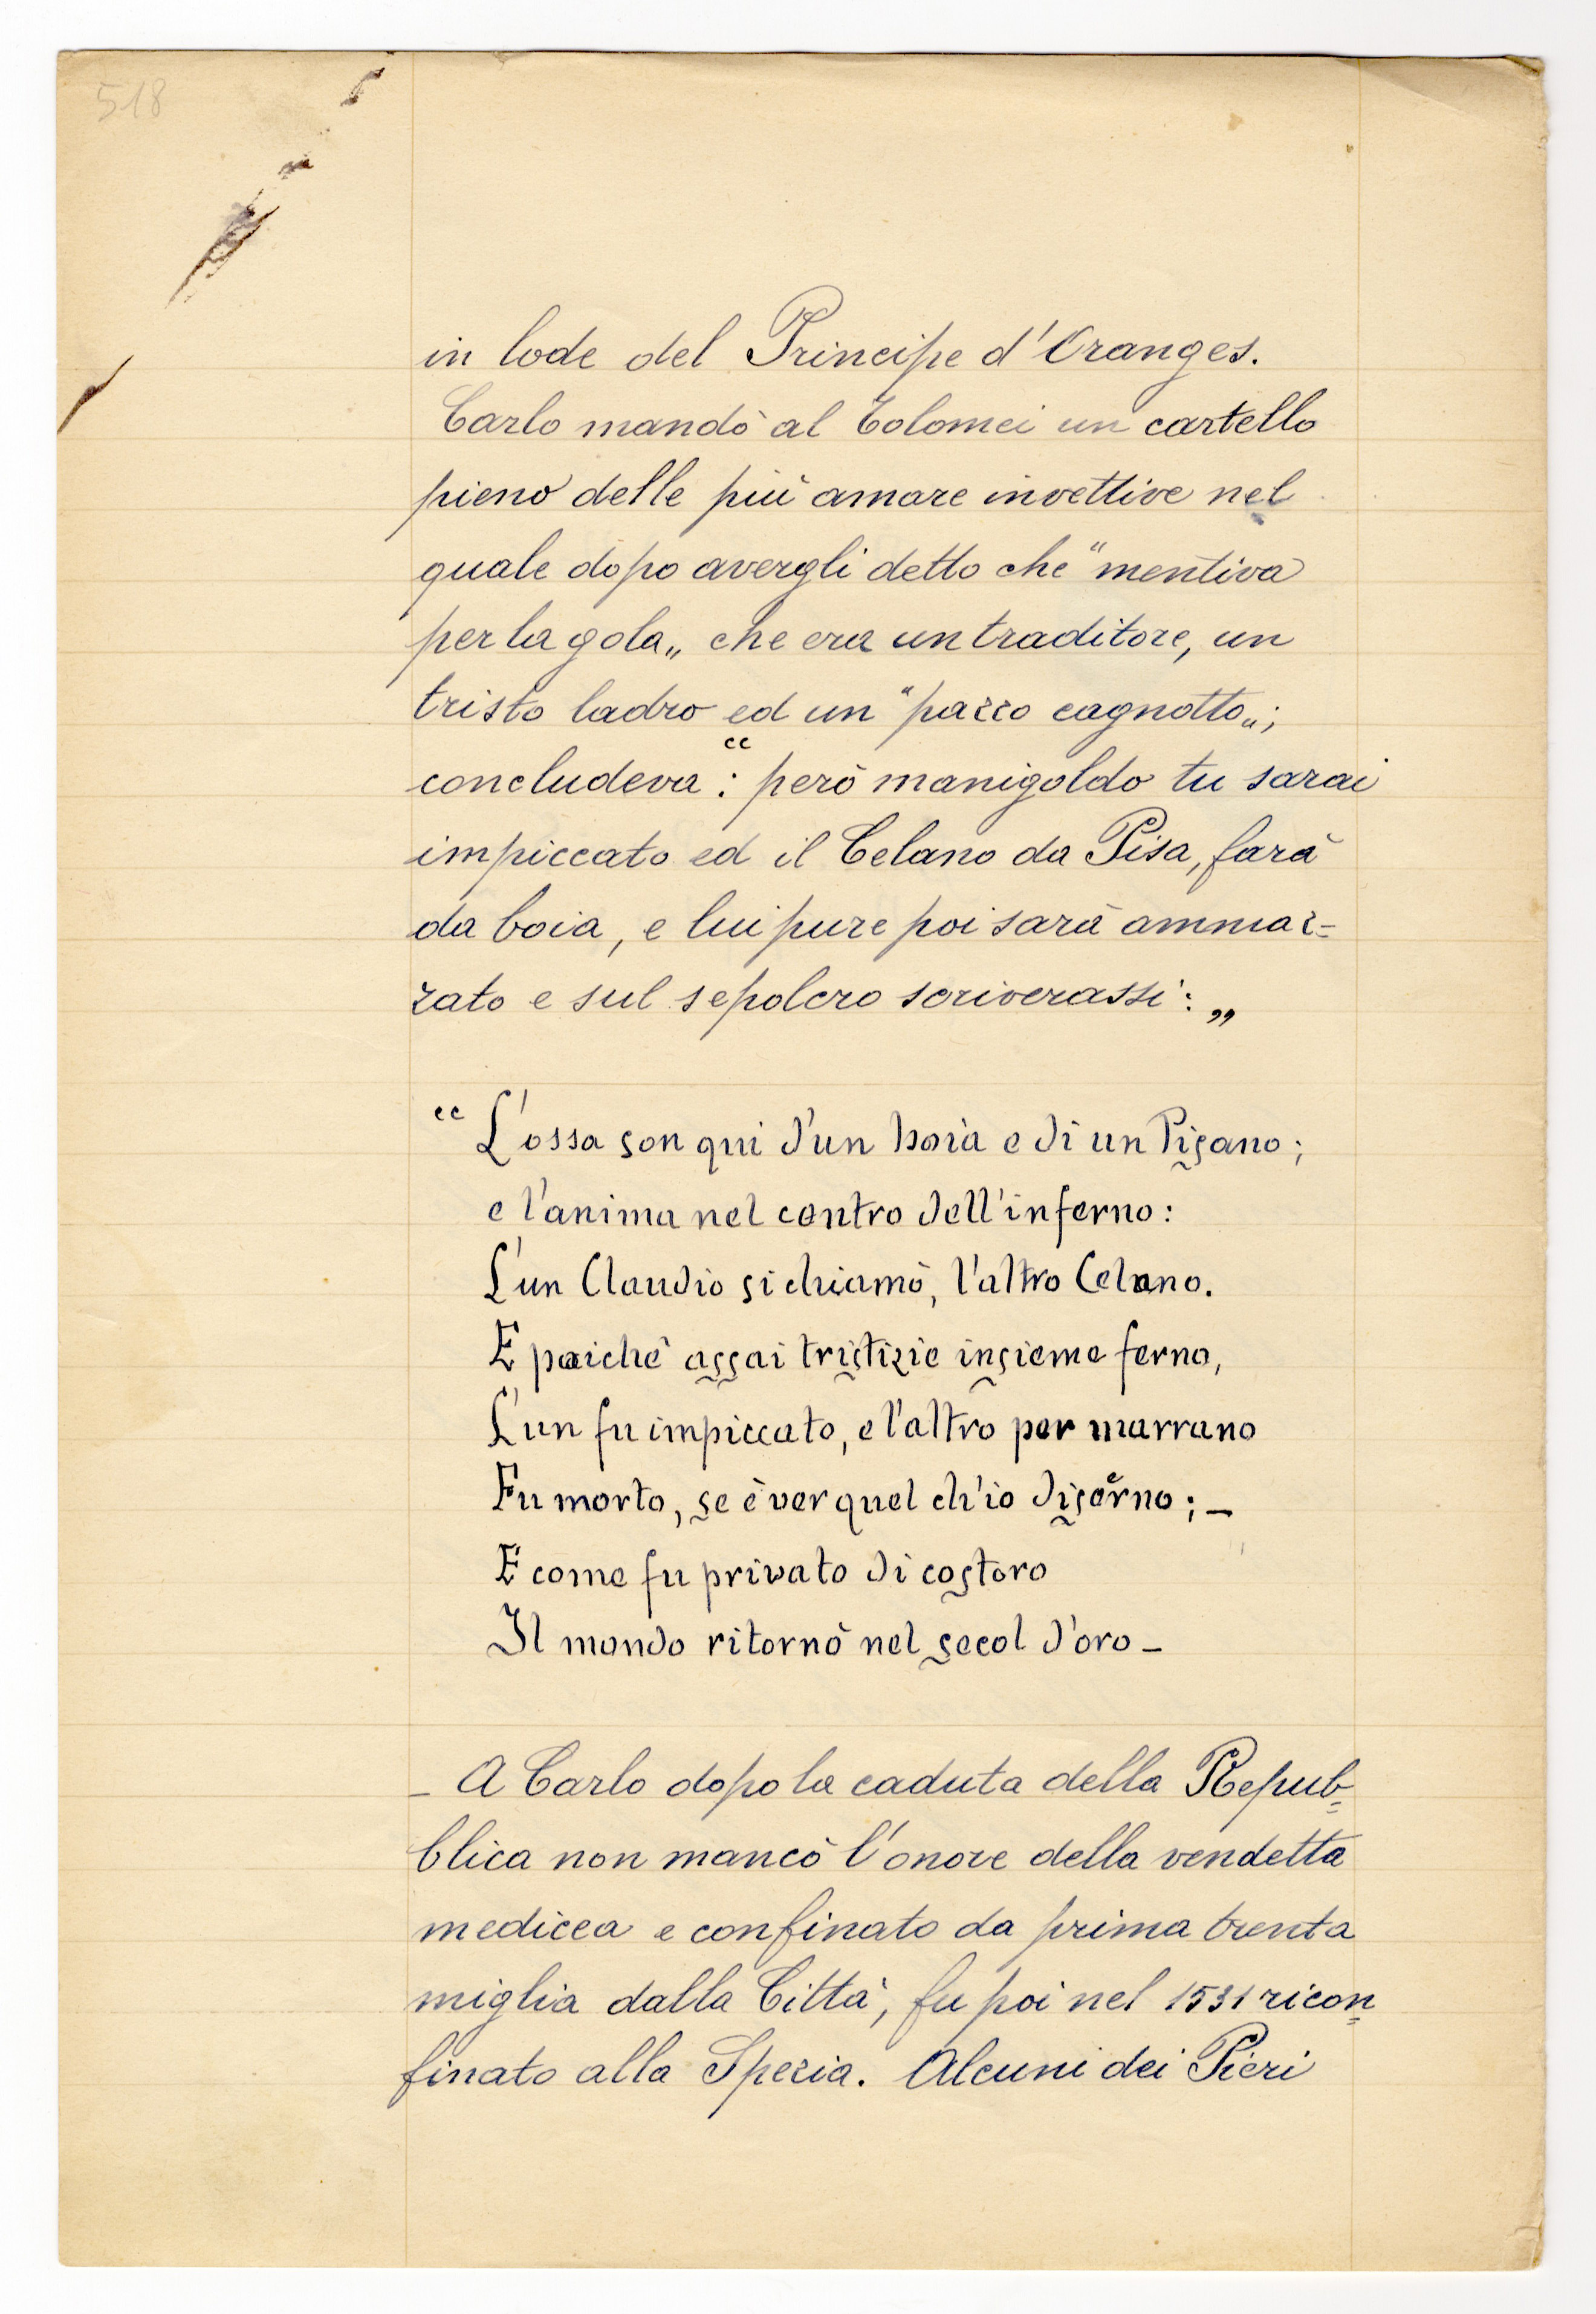 518
in lode del Principe d'Oranges.
Carlo mandò al Tolomei un cartello
pieno delle più amare invettive nel
quale dopo avergli detto che "mentiva
per la gola„ che era un traditore, un
tristo ladro ed un "pazzo cagnotto„;
concludeva: “però manigoldo tu sarai
impiccato ed il Celano da Pisa, farà
da boia, e lui pure poi sarà ammaz=
zato e sul sepolcro scriverassi: „
“L'ossa son qui d'un boia e di un Pisano;
e l'anima nel centro dell'inferno:
L'un Claudio si chiamò, l'altro Celano.
E poichè assai tristizie insieme ferno,
L'un fu impiccato, e l'altro per marrano
Fu morto, se è ver quel ch'io diserno; _
E come fu privato di costoro
Il mondo ritornò nel secol d'oro _
_ A Carlo dopo la caduta della Repub=
blica non mancò l'onore della vendetta
medicea e confinato da prima trenta
miglia dalla Città, fu poi nel 1531 ricon=
finato alla Spezia. Alcuni dei Pieri